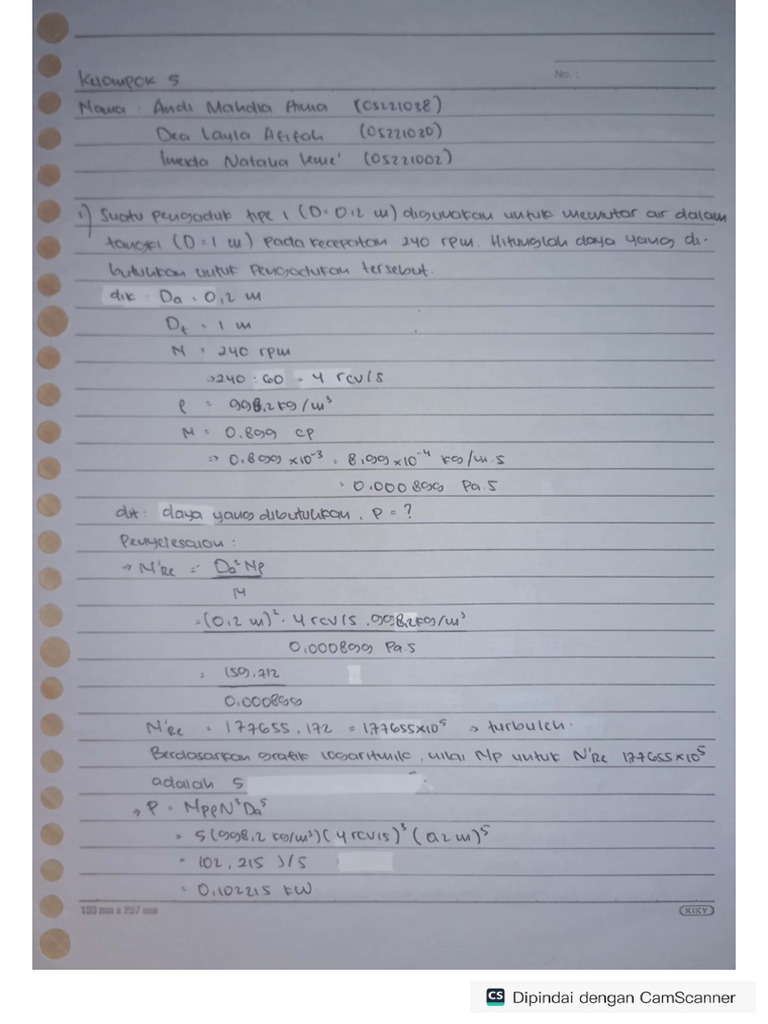 Kelompok 5
No :
Nama : Andi Mahdia Anna (05221038)
Dea Layla Afifah (05221020)
Natalia (05221002)
1) Suatu pengaduk tipe 1 (D = 0,2 m) digunakan untuk memutar air dalam
tangki (D = 1 m) pada kecepatan 240 rpm. Hitunglah daya yang di-
butuhkan untuk pengadukan tersebut.
dik : Da = 0,2 m
Dt = 1 m
N = 240 rpm
→ 240 : 60 = 4 rev/s
ρ = 998,2 kg/m³
μ = 0.899 cp
⇒ 0.899 x10⁻³ = 8,99 x10⁻⁴ kg/m.s
= 0.000899 Pa.s
dit : daya yang dibutuhkan, P = ?
Penyelesaian :
→ N'Re = Da² Nρ
μ
= (0,2 m)² . 4 rev/s . 998,2 kg/m³
0,000899 Pa.s
= 159,712
0.000899
N'Re = 177655,172 = 177655x10⁵ → turbulen.
Berdasarkan grafik logaritmik, nilai Np untuk N'Re 177655x10⁵
adalah 5
→ P = NpρN³Da⁵
= 5 (998,2 kg/m³) (4 rev/s)³ (0,2 m)⁵
= 102,215 J/s
= 0,102215 kW
180 mm x 257 mm
KIKY
CS Dipindai dengan CamScanner